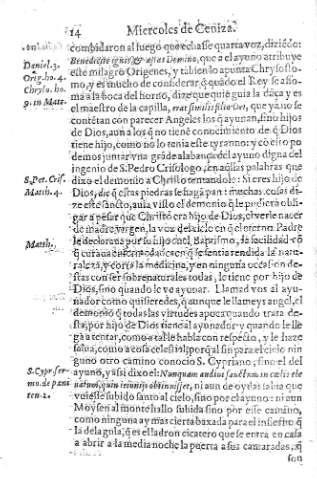 14 Miercoles de Ceniza.
combidaron al fuego que echasse quarta voz, diziédo:
Daniel.3. Benedicite ignis, & æstus Domino, que a el ayuno atribuye
Orig. ho. 4. este milagro Origenes, y tabien lo apunta Chrysosto-
Chryso. ho. mo, y es mucho de considerar q̃ quádo el Rey se asso-
9. in Matt. ma a la boca del horno, dize que quié guia la dáça y es
el maestro de la capilla, erat similis filio Dei, que ya no se
contétan con parecer Angeles los q̃ ayunan, sino hijos
de Dios, aun a los q̃ no tiené conocimiento de q̃ Dios
tiene hijo, como no lo tenia este tyranno: y có esto po
demos juntar vna gráde alabança del ayuno digna del
ingenio de S. Pedro Crisologo, en aquellas palabras que
S. Pet. Cris. dixo el demonio a Christo tentandole: Si eres hijo de
Matth. 4. Dios, dic q̃ estas piedras se hagá pan: muchas cosas di-
ze este sancto, auia visto el demonio que le pudiera obli-
gar a pésar que Christo era hijo de Dios, el verle nacer
de madre virgen, la voz del cielo en q̃ el eterno Padre
Matth. le declaraua por su hijo en el Baptismo, la facilidad có
q̃ curaua enfermedades en q̃ se sentia rendida la natu-
raleza, y corta la medicina, y en ninguna occasion de-
stas con ser sobrenaturales todas, le tiene por hijo de
Dios, sino quando le ve ayunar. Llamad vos al ayu-
nador como quisieredes, q̃ aunque le llameys angel, el
demonio q̃ todas las virtudes apoca quando trata de-
sta, por hijo de Dios tiene al ayunador y quando le lle
ga a tentar, como a tal le habla con respecto, y le haze
salua, como a cosa celestial porq̃ al fin para el cielo nin
guno otro camino conocio S. Cypriano, sino el del
S. Cypr. ser- ayuno, y assi dixo el: Nunquam audiui sanctum in cœlis ele
mo. de pani uatum, quin ieiunijs obtinuisset, ni aun de oydas sabia que
ten. 2. vuiesse subido santo al cielo, sino por el ayuno: ni aun
Moysen al monte hallo subida sino por este camino,
como ninguna ay mas cierta baxada para el infierno q̃
la de la gula, q̃ es el ladron cicatero que se entra en casa
a abrir a la media noche la puerta a sus camaradas, q̃
son